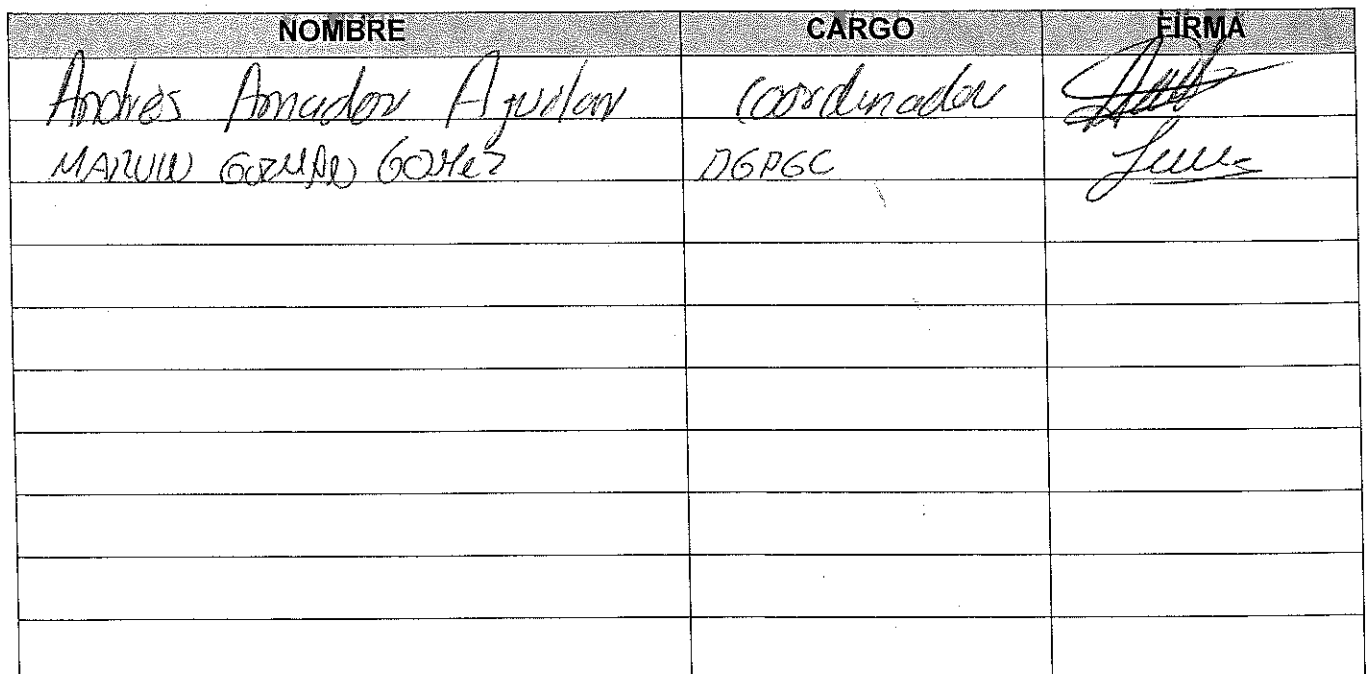 NOMBRE CARGO FIRMA
Andrés Amador Aguilar Coordinador
MARVIN GUZMAN GOMEZ DGPGC